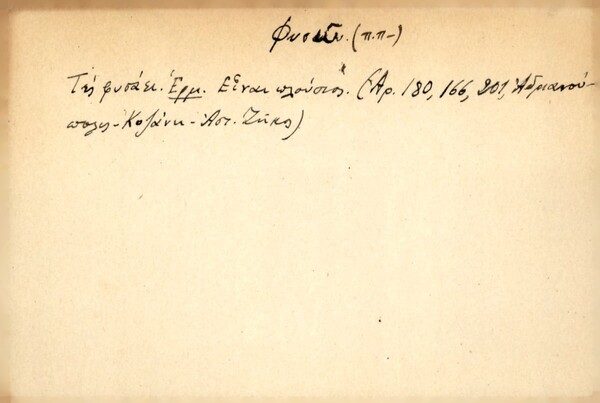 Φυσῶ. (π.π-)
Τὴς φυσάει. Ἑρμ. Εἶναι πλούσιος. (Ἀρ. 180, 166, 201, Ἀδριανού-
πολις - Κοζάνη - Ἀστ. Ζῆκος)